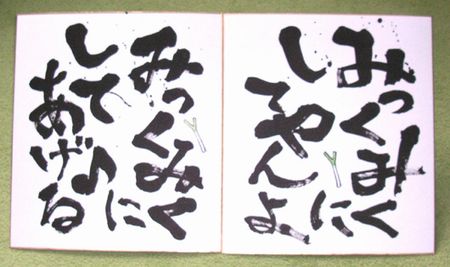 みっくみくに
してやんよ
みっくみくに
して♪
あげる